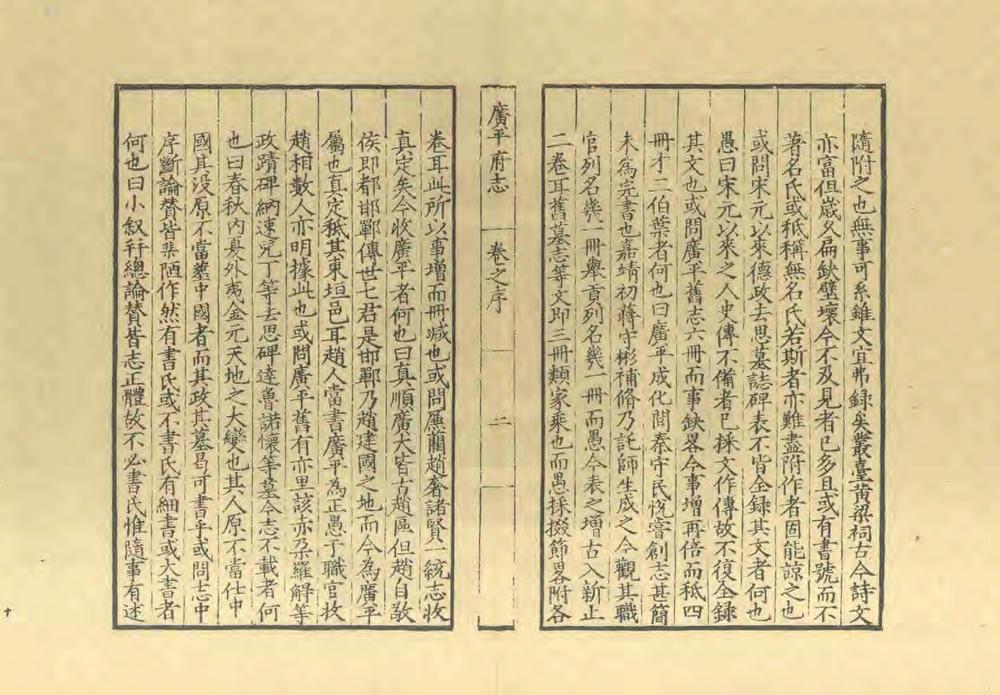 隨附之也無事可系雖文宜弗録矣叢臺黄梁祠古今詩文
亦富但歳久扁鈌壁壞今不及見者已多且或有書號而不
著名氏或秪稱無名氏若斯者亦難盡附作者固能諒之也
或問宋元以來德政去思墓誌碑表不皆全録其文者何也
愚曰宋元以來之人史傳不備者已採文作傳故不復全録
其文也或問廣平舊志六冊而事鈌畧今事增再倍而秪四
冊才二伯葉者何也曰廣平成化間秦守民悦甞創志甚簡
未為完書也嘉靖初蔣守彬補脩乃託師生成之今觀其職
官列名幾一冊舉貢列名幾一冊而愚今表之增古入新止
二卷耳舊墓志等文即三冊類家乘也而愚採掇節畧附各
廣平府志
卷之序
二
卷耳此所以事增而冊减也或問廉藺趙奢諸賢一統志收
真定矣今收廣平者何也曰真順廣大皆古趙區但趙自敬
侯即都邯鄲傳世七君是邯鄲乃趙建國之地而今為廣平
屬也真定秪其東垣邑耳趙人當書廣平為正愚于職官收
趙相數人亦明據此也或問廣平舊有亦里該亦朶羅解等
政蹟碑納速兒丁等去思碑達魯諾懷等墓今志不載者何
也曰春秋内夏外夷金元天地之大變也其人原不當仕中
國其没原不當塟中國者而其政其墓曷可書乎或問志中
序斷論贊皆朞陋作然有書氏或不書氏有細書或大書者
何也曰小叙并總論贊皆志正體故不必書氏惟隨事有述